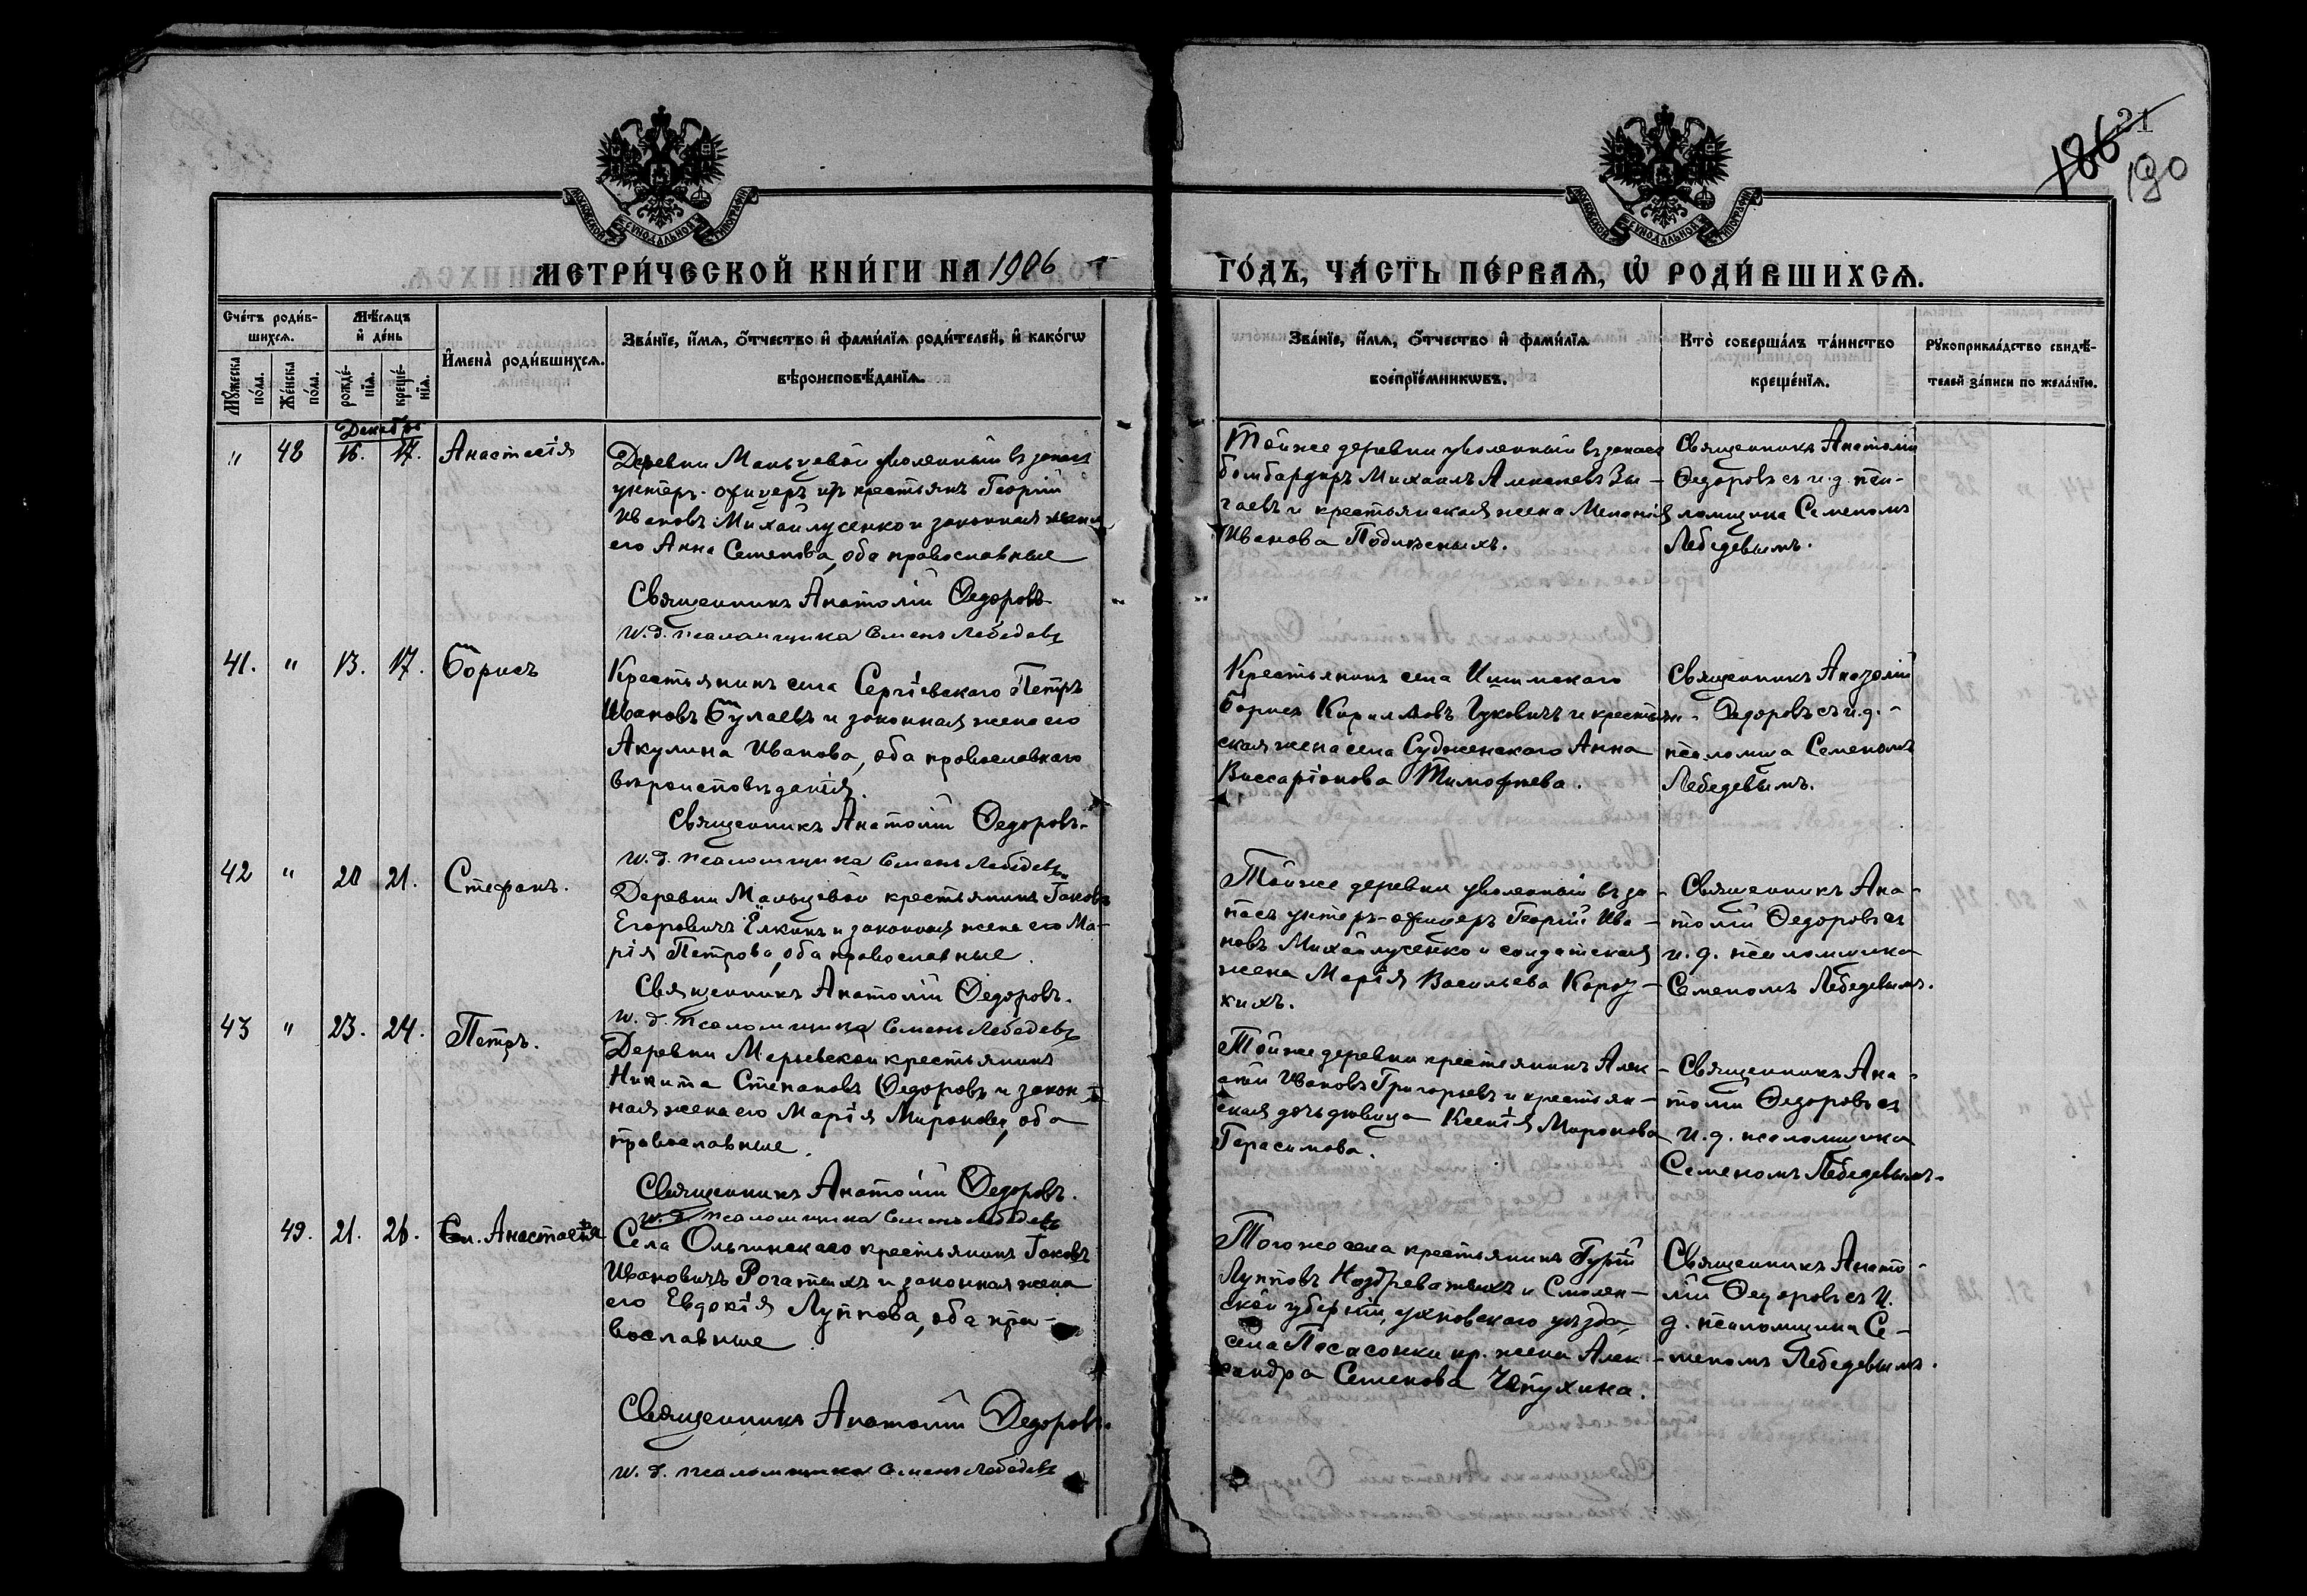 21
186
190
МОСКОВСКОЙ СѴНОДАЛЬНОЙ ТИПОГРАФІИ
МОСКОВСКОЙ СѴНОДАЛЬНОЙ ТИПОГРАФІИ
МЕТРИ́ЧЕСКОЙ КНИ́ГИ НА 1906 ГО́ДЪ, ЧА́СТЬ ПЕ́РВАѦ, Ѡ҆ РОДИ́ВШИХСѦ.
Сче́тъ роди́в-
шихсѧ.
Мꙋ́жеска по́ла.
Же́нска по́ла.
Мѣ́сѧцъ
и҆ де́нь
рожде́-
нїѧ.
креще́-
нїѧ.
И҆мена̀ роди́вшихсѧ.
Зва́нїе, и҆́мѧ, ѻ҆́тчество и҆ фами́лїѧ роди́телей, и҆ како́гѡ
вѣроисповѣ́данїѧ.
Зва́нїе, и҆́мѧ, ѻ҆́тчество и҆ фами́лїѧ
воспрїе́мникѡвъ.
Кто̀ соверша́лъ та́инство
креще́нїѧ.
Рꙋкоприкла́дство свидѣ́-
телей за́писи по жела́нїю.
Декабрь
" 48 16. 17. Анастасія
Деревни Мальцевой уволенный въ запасъ
унтеръ-офицеръ изъ крестьянъ Георгій
Ивановъ Михайлусенко и законная жена
его Анна Семенова, оба православные
Священникъ Анатолій Ѳедоровъ
И. д. псаломщика Семенъ Лебедевъ
Тойже деревни уволенный въ запасъ
бомбардиръ Михаилъ Алексѣевъ
и крестьянская жена Меланія
Иванова
Священникъ Анатолій
Ѳедоровъ съ и. д. пса-
ломщика Семеномъ
Лебедевымъ.
41. " 13. 17. Борисъ
Крестьянинъ села Сергіевскаго Петръ
Ивановъ Булаевъ и законная жена его
Акулина Иванова, оба православнаго
вѣроисповѣданія.
Священникъ Анатолій Ѳедоровъ.
И. д. псаломщика Семенъ Лебедевъ
Крестьянинъ села Ишимскаго
Борисъ Кирилловъ Гуковичъ и крестьян-
ская жена села Судженскаго Анна
Виссаріонова Тимофеева.
Священникъ Анатолій
Ѳедоровъ съ и. д.
псаломщ Семеномъ
Лебедевымъ.
42 " 20 21. Стефанъ.
Деревни Мальцевой крестьянинъ Іаковъ
Егоровичъ Елкинъ и законная жена его Ма-
рія Петрова, оба православные.
Священникъ Анатолій Ѳедоровъ.
И. д. псаломщика Семенъ Лебедевъ
Тойже деревни уволенный въ за-
пасъ унтеръ-офицеръ Георгій Ива-
новъ Михайлусенко и солдатская
жена Марія Васильева
Священникъ Ана-
толій Ѳедоровъ съ
и. д. псаломщика
Семеномъ Лебедевымъ.
43 " 23. 24. Петръ.
Деревни крестьянинъ
Никита Степановъ Ѳедоровъ и закон-
ная жена его Марія Миронова, оба
православные.
Священникъ Анатолій Ѳедоровъ.
И. д. псаломщика Семенъ Лебедевъ
Тойже деревни крестьянинъ Алек-
сѣй Ивановъ Григорьевъ и крестьян-
ская дочь дѣвица Ксенія Миронова
Герасимова.
Священникъ Ана-
толій Ѳедоровъ съ
и. д. псаломщика
Семеномъ Лебедевымъ.
49. 21. 26. Анастасія
Села Ольгинскаго крестьянинъ Іаковъ
Ивановичъ Рогатыхъ и законная жена
его Евдокія Луппова, оба пра-
вославные
Священникъ Анатолій Ѳедоровъ.
И. д. псаломщика Семенъ Лебедевъ
Тогоже села крестьянинъ Гурій
Лупповъ Ноздреватыхъ и Смолен-
ской губерніи, уѣзда,
села кр. жена Алек-
сандра Семенова
Священникъ Анато-
лій Ѳедоровъ съ и.
д. псаломщика Се-
меномъ Лебедевымъ.